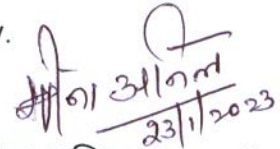 मीना अनिल
23/1/2023